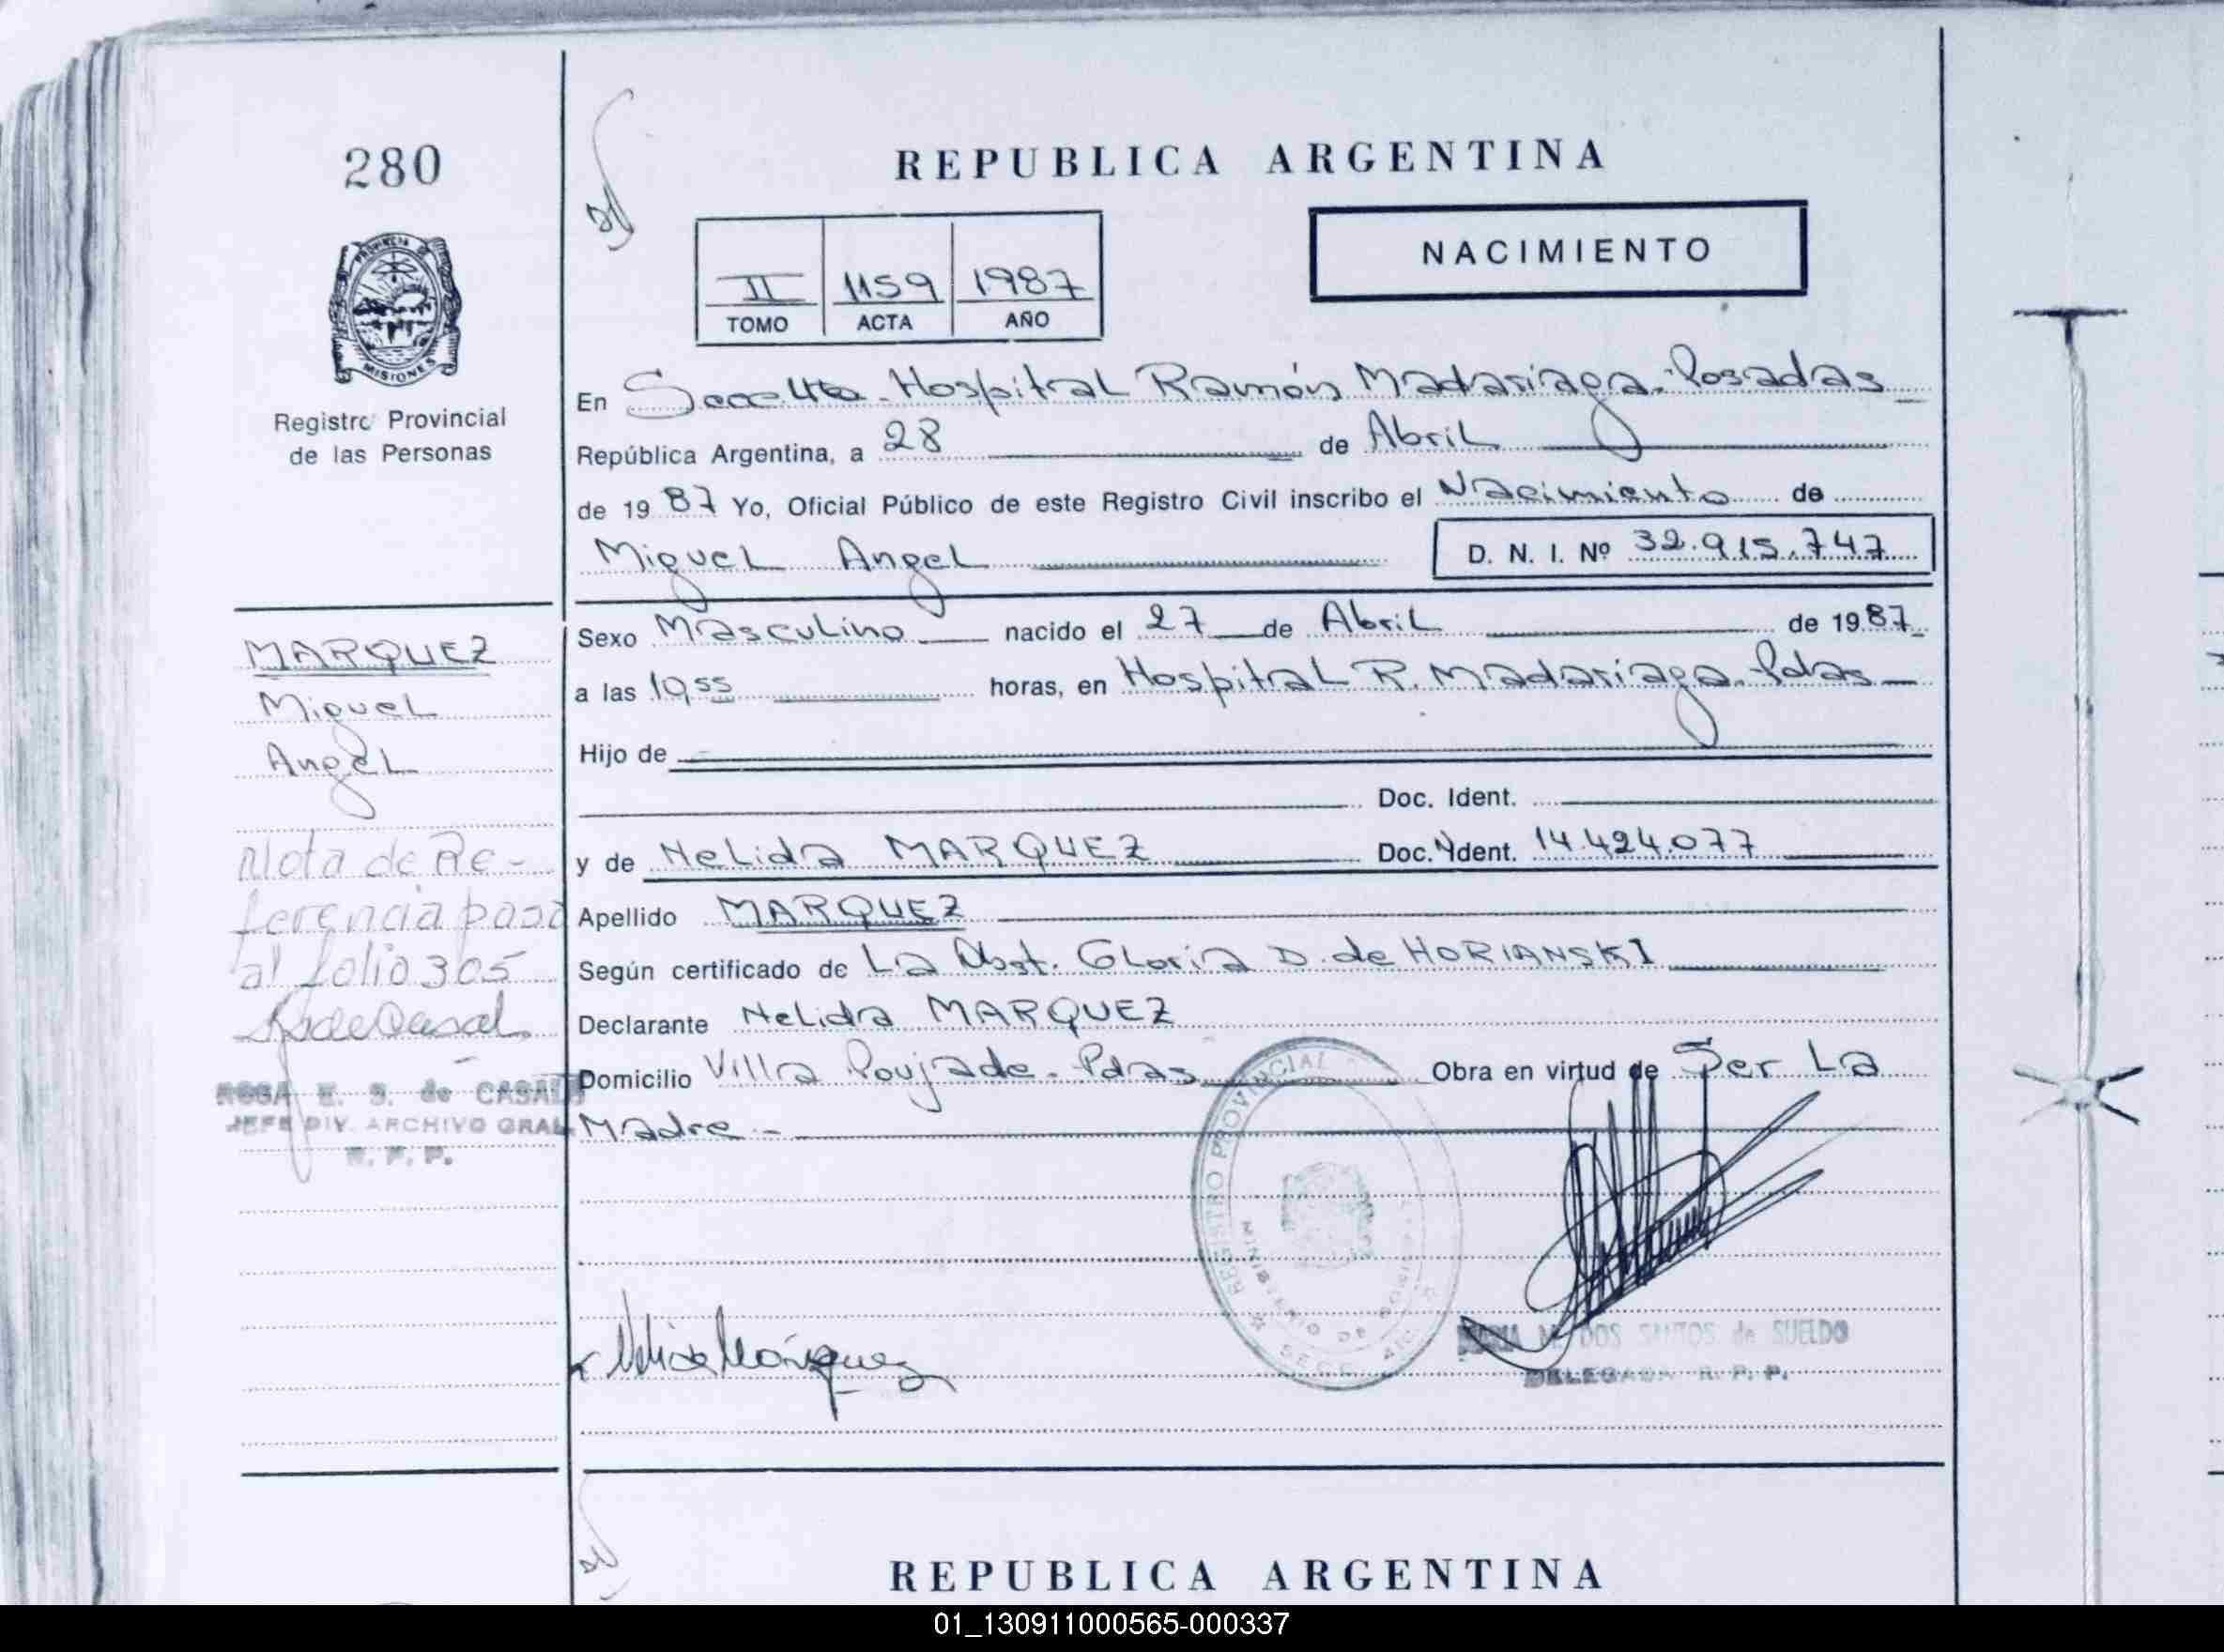 280
PROVINCIA DE
MISIONES
Registro Provincial
de las Personas
REPUBLICA ARGENTINA
NACIMIENTO
II 1159 1987
TOMO ACTA AÑO
En Hospital Ramón Madariaga. Posadas
República Argentina, a 28 de Abril
de 1987 Yo, Oficial Público de este Registro Civil inscribo el Nacimiento de
Miguel Angel D. N. I. Nº 32.915.747
Sexo Masculino nacido el 27 de Abril de 1987
a las 10,55 horas, en Hospital R. Madariaga. Pdas
Hijo de
Doc. Ident.
y de Nelida MARQUEZ Doc. Ident. 14.424.077
Apellido MARQUEZ
Según certificado de La Obst. Gloria D. de HORIANSKI
Declarante Nelida MARQUEZ
Domicilio Villa Poujade. Pdas Obra en virtud de Ser La
Madre -
MARQUEZ
Miguel
Angel
Nota de Re-
ferencia pasa
al folio 305
ROSA E. S. de CASAL
JEFE DIV. ARCHIVO GRAL
R. P. P.
REGISTRO PROVINCIAL
MINISTERIO DE
Nelida Márquez
MARIA M. DOS SANTOS de SUELDO
DELEGADA R. P. P.
REPUBLICA ARGENTINA
01_130911000565-000337